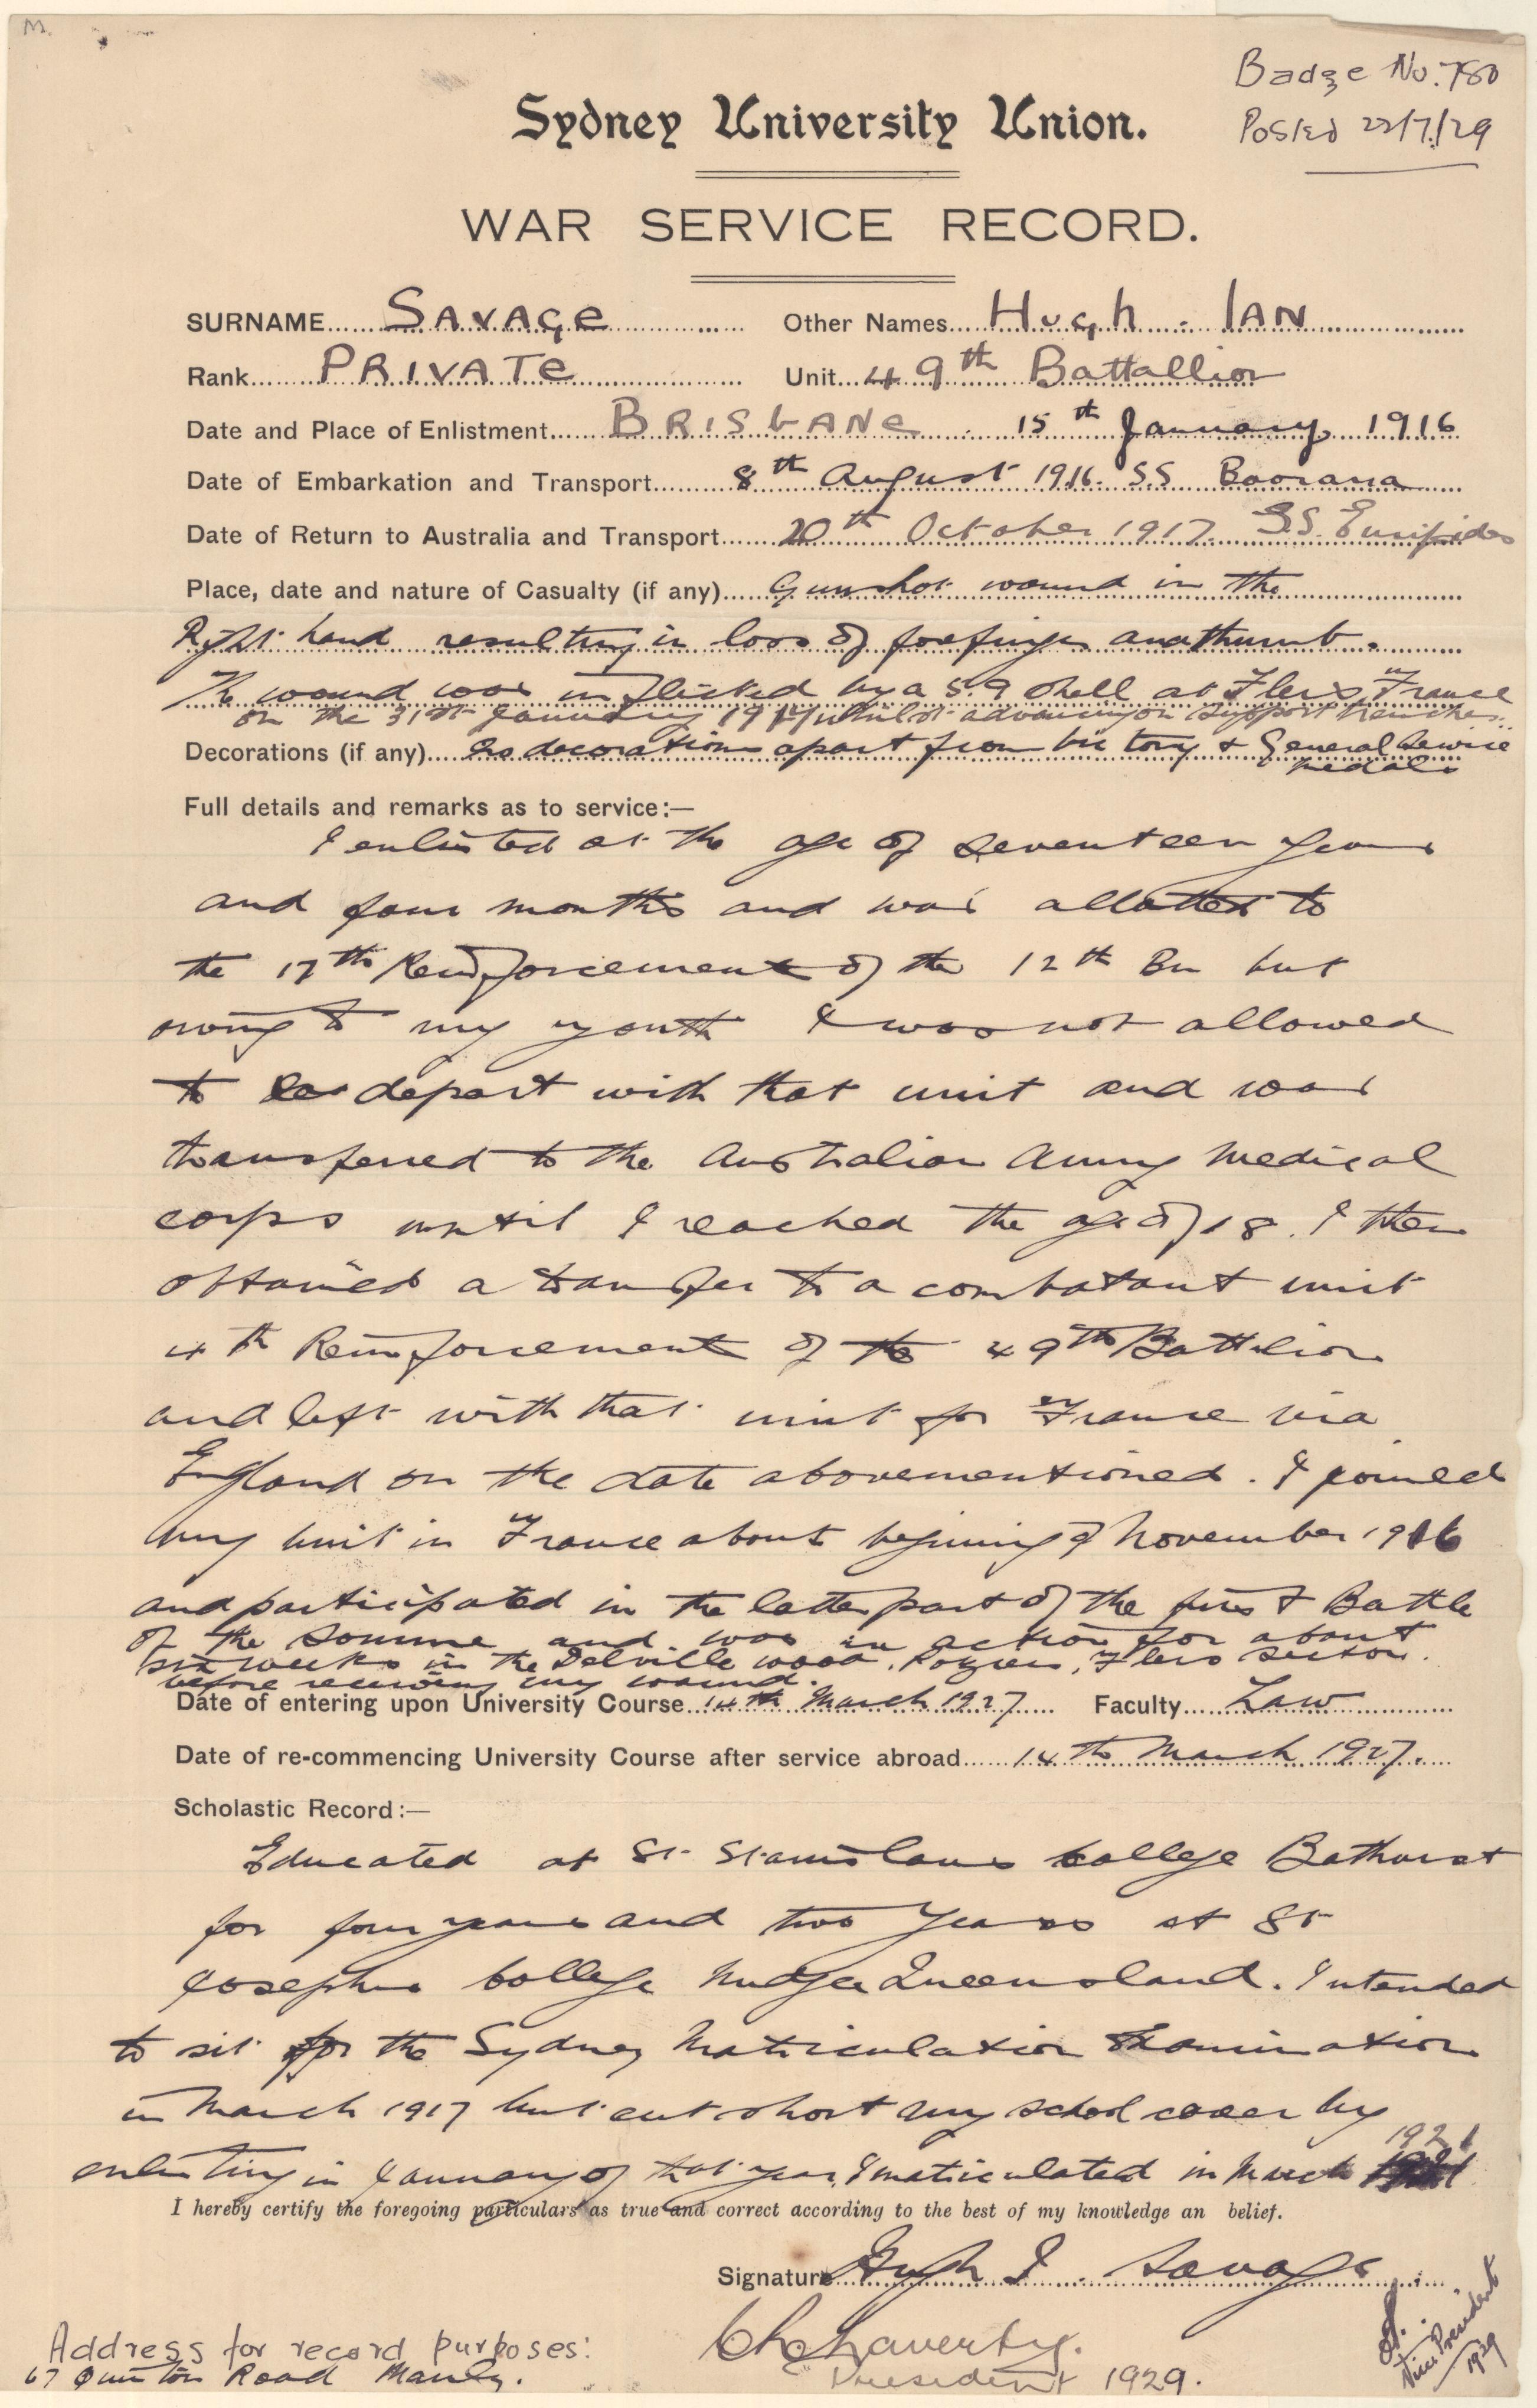 M.
Badge No. 780
Posted 22/7/29
Sydney University Union.
WAR SERVICE RECORD.
SURNAME Savage Other Names Hugh Ian
Rank Private Unit 49th Battallion
Date and Place of Enlistment Brisbane 15th January 1916
Date of Embarkation and Transport 8th August 1916 S.S Boorara
Date of Return to Australia and Transport 20th October 1917 S.S. Euripides
Place, date and nature of Casualty (if any) Gunshot wound in the
Right hand resulting in loss of forefinger and thumb.
The wound was inflicted by a 5.9 shell at Flers, France
on the 31st January 1917 whilst advancing on support trenches.
Decorations (if any) No decorations apart from Victory & General Service
medals
Full details and remarks as to service:—
I enlisted at the age of seventeen years
and four months and was allotted to
the 17th Reinforcement of the 12th Bn but
owing to my youth I was not allowed
to depart with that unit and was
transferred to the Australian Army Medical
corps until I reached the age of 18. I then
obtained a transfer to a combatant unit
4th Reinforcement of the 49th Battalion
and left with that unit for France via
England on the date abovementioned. I joined
my unit in France about begining of November 1916
and participated in the latter part of the first Battle
of the Somme and was in action for about
six weeks in the Delville wood, Pozieres, Flers sector.
before receiving my wound.
Date of entering upon University Course 14th March 1927 Faculty Law
Date of re-commencing University Course after service abroad 14th March 1927.
Scholastic Record:—
Educated at St. Stanislaus College Bathurst
for four years and two years at St
Josephs College Nudgee Queensland. Intended
to sit for the Sydney Matriculation Examination
in March 1917 but cut short my school career by
enlisting in January of that year. I matriculated in March 1921
I hereby certify the foregoing particulars as true and correct according to the best of my knowledge an belief.
Signature Hugh I. Savage
President 1929.
Vice President
1929
Address for record purposes:
67 Quinton Road Manly.